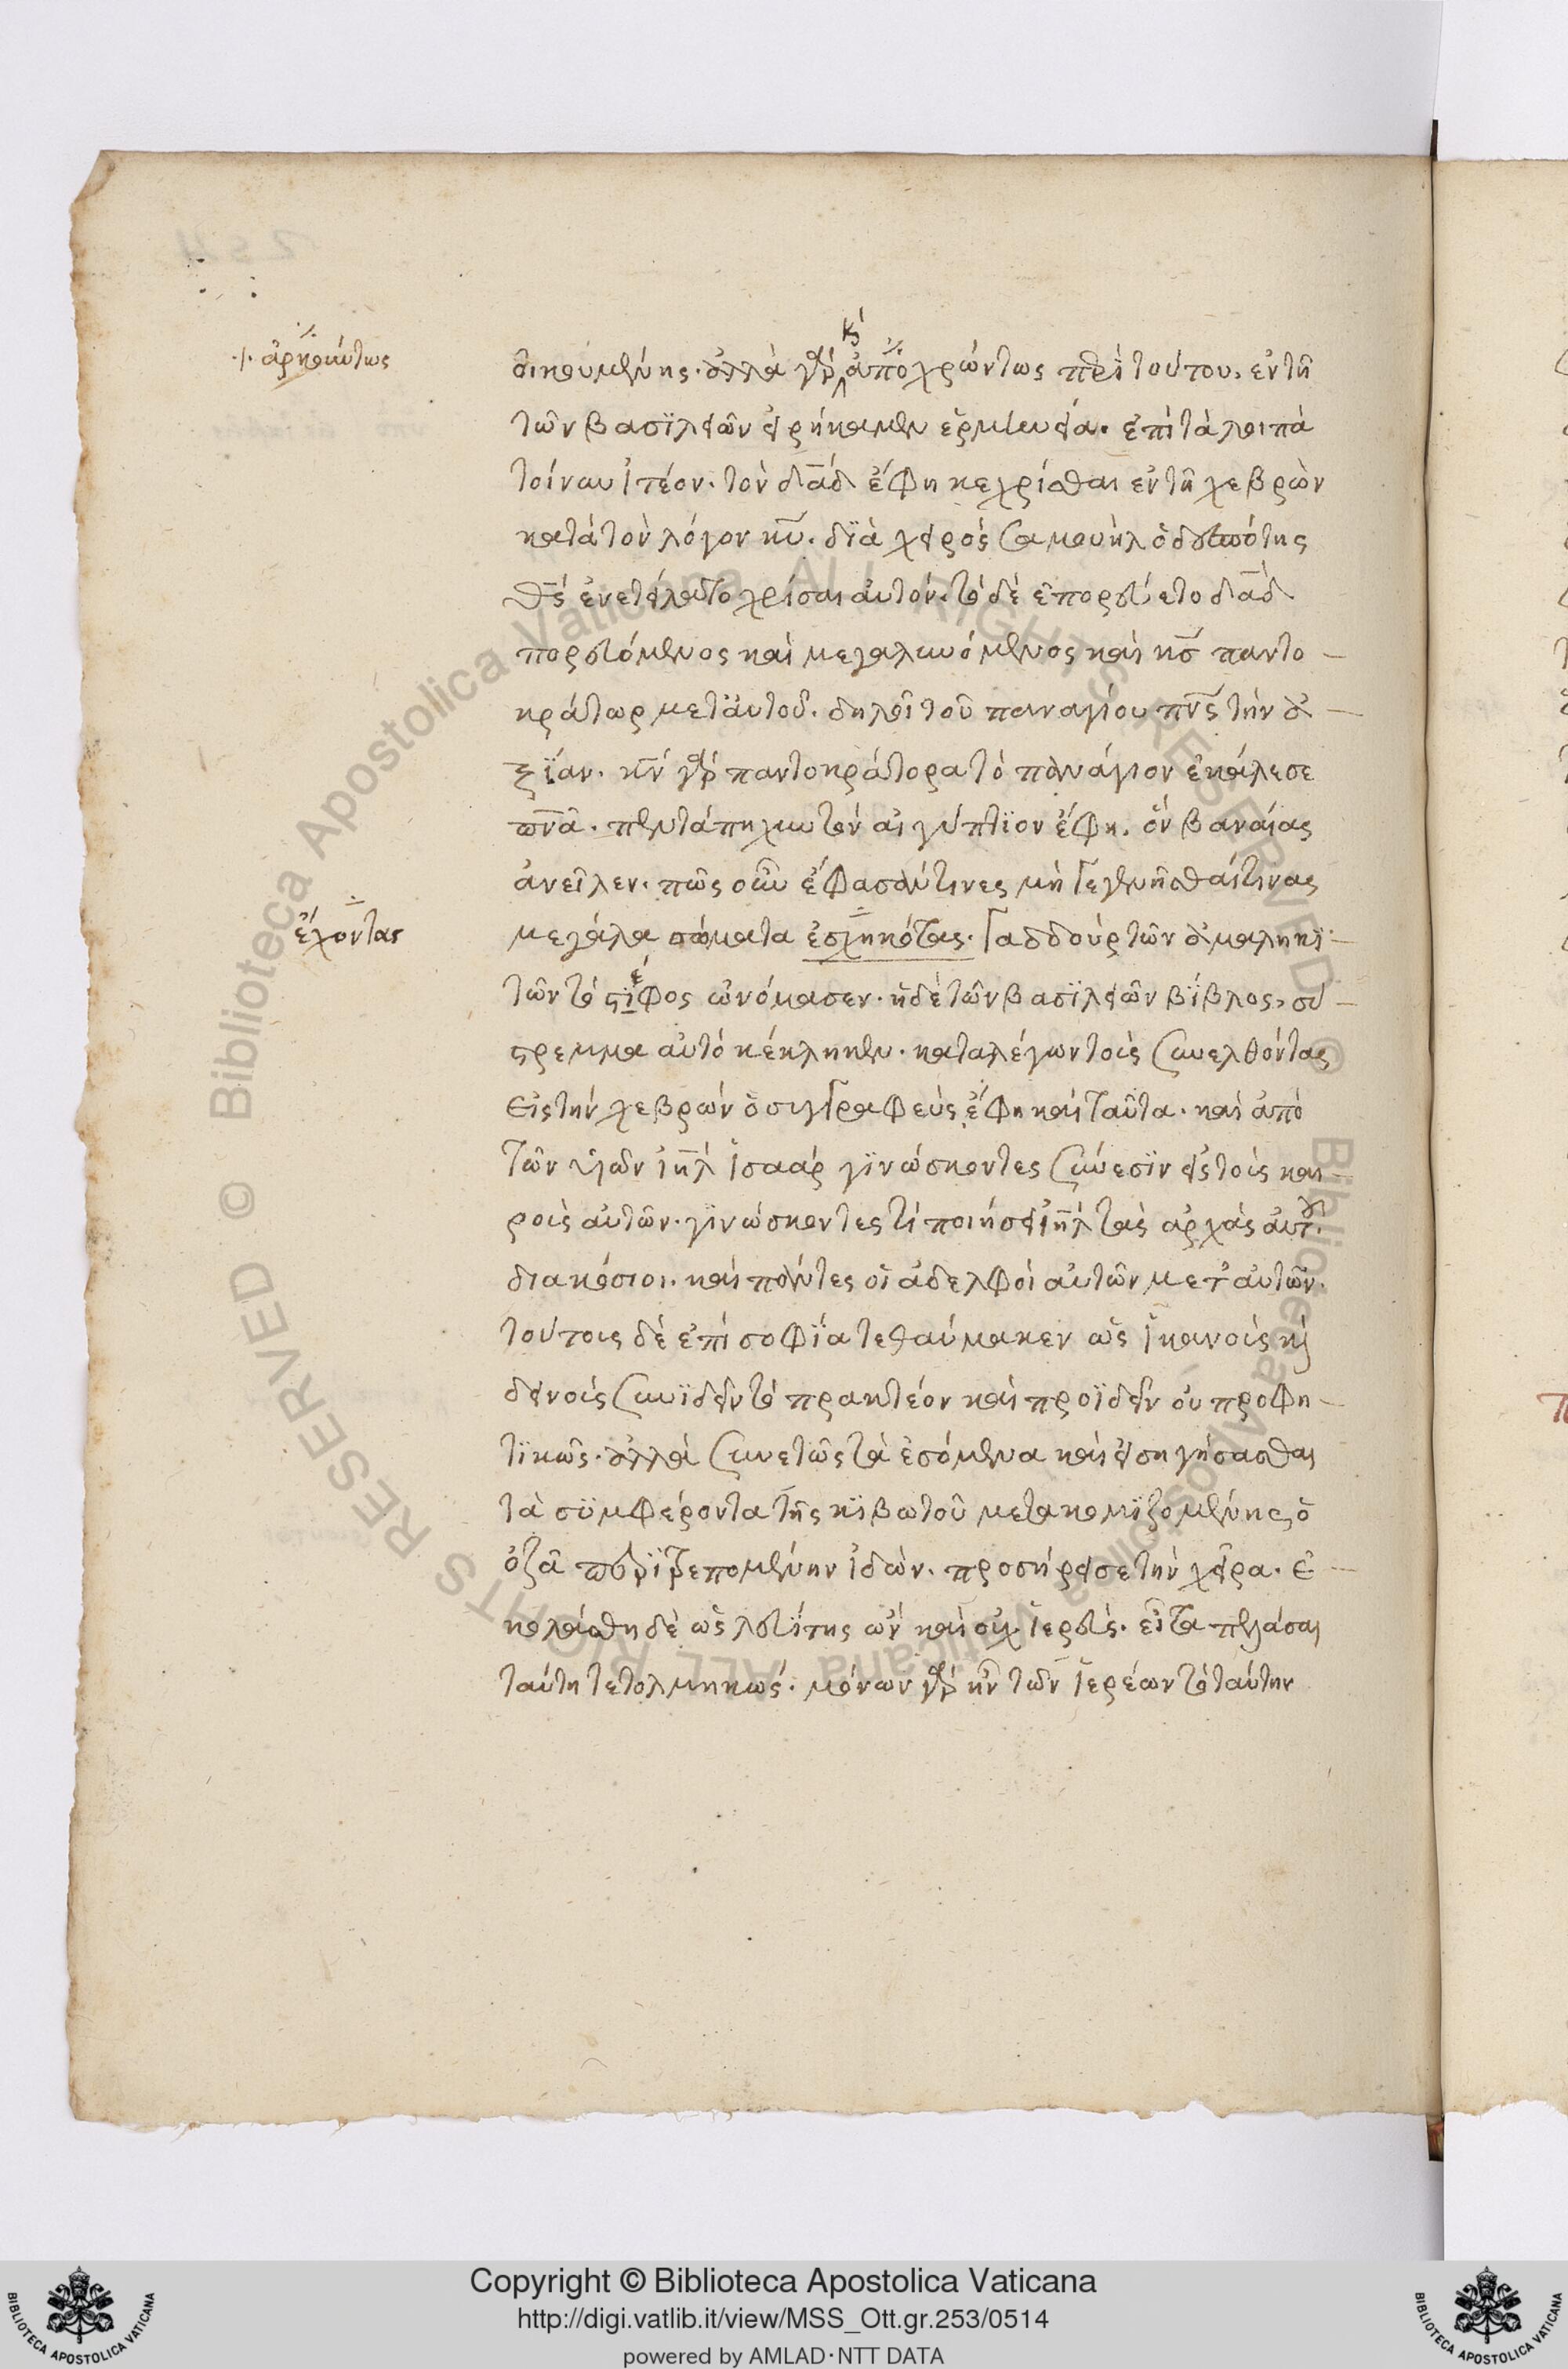 ·/· ἀρκούντως
οικουμένης. ἀλλὰ γὰρ κὶ ἀποχρώντως περὶ τούτου, ἐν τῆ
τῶν βασϊλειῶν εἰρήκαμεν ἑρμηνεία. ἐπὶ τὰ λοιπὰ
τοίνυν ἰτέον. τὸν δᾱδ ἔφη κεχρίσθαι ἐν τῆ χεβρὼν
κατὰ τὸν λόγον κῡ. δϊὰ χειρὸς σαμουὴλ ὁ δεσπότης
θς̄ ἐνετείλατο χρίσαι αὐτόν. τὸ δὲ ἐπορεύετο δᾱδ
πορευόμενος καὶ μεγαλυνόμενος καὶ κς̄ παντο
κράτωρ μετ' αὐτοῦ. δηλοῖ τοῦ παναγίου πν̄ς τὴν ἀ
ξΐαν. κν̄ γὰρ παντοκράτορα τὸ πανάγιον ἐκάλεσε
πν̄α. πεντάπηχυν τὸν αἰγύπτϊον ἔφη. ὃν βαναίας
ἀνεῖλεν. πῶς οὖν ἔφασάν τινες μὴ γεγενῆσθαί τινας
ἔχοντας
μεγάλα σώματα ἐσχηκότας. γαδδοὺρ τῶν ἀμαληκϊ
τῶν τὸ στΐφος ὠνόμασεν. ἡ δὲ τῶν βασϊλειῶν βΐβλος, σύ
στρεμμα αὐτὸ κέκληκεν. καταλέγων τοὺς συνελθόντας
εἰς τὴν χεβρὼν ὁ συγγραφεὺς ἔφη καὶ ταῦτα. καὶ ἀπὸ
τῶν υἱῶν ιη̄λ ἰσαὰρ γϊνώσκοντες σύνεσϊν εἰς τοὺς και
ροὺς αὐτῶν. γϊνώσκοντες τί ποιήσει ιη̄λ τὰς ἀρχὰς αὐτῶν.
διακόσιοι. καὶ πάντες οἱ ἀδελφοὶ αὐτῶν μετ' αὐτῶν.
τούτους δὲ ἐπὶ σοφΐα τεθαύμακεν ὡς ἱκανοὺς κὶ
δεινοὺς συνϊδεῖν τὸ πρακτέον καὶ προϊδεῖν οὐ προφη
τϊκῶς. ἀλλὰ συνετῶς τὰ ἐσόμενα καὶ εἰσηγήσασθαι
τὰ σϋμφέροντα τῆς κϊβωτοῦ μετακομϊζομένης, ὁ
ὀζᾶ περϊτρεπομένην ἰδὼν. προσήρεισε τὴν χεῖρα. ἐ
κολάσθη δὲ ὡς λευΐτης ὢν καὶ οὐχ ἱερεύς. εἶτα πελάσαι
ταύτη τετολμηκώς. μόνων γὰρ ἦν τῶν ἱερέων τὸ ταύτην
Copyright © Biblioteca Apostolica Vaticana
http://digi.vatlib.it/view/MSS_Ott.gr.253/0514
powered by AMLAD·NTT DATA